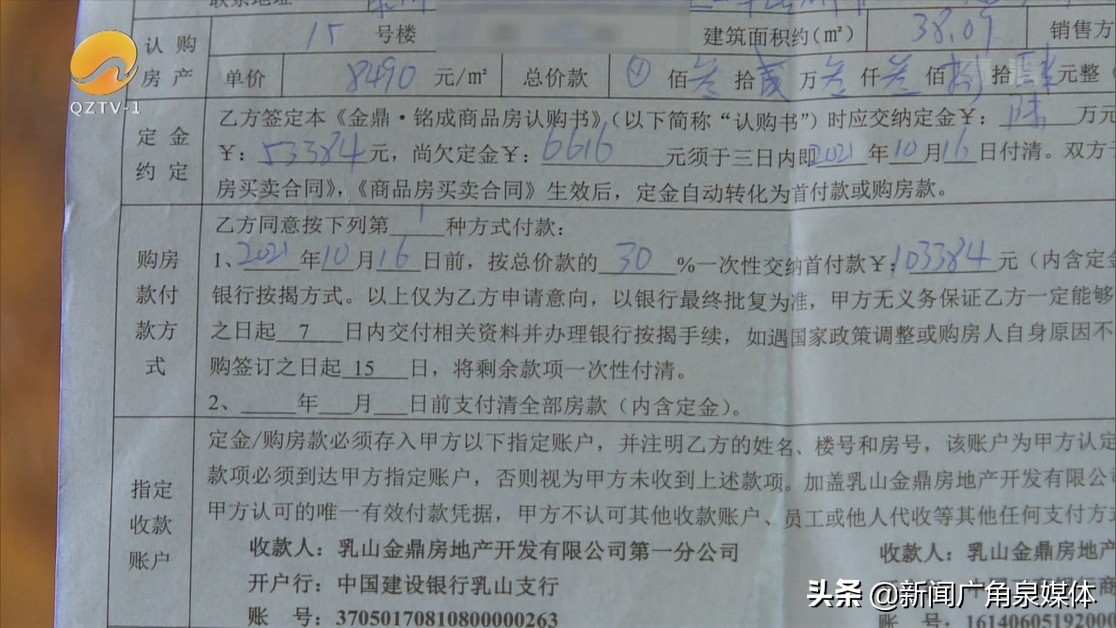 联系地址
认购房产
15 号楼 建筑面积约(m²) 38.09 销售方
单价 8490 元/m² 总价款 佰叁拾贰万叁仟叁佰捌拾肆元整
QZTV-1
定金约定
乙方签定本《金鼎·铭成商品房认购书》,(以下简称“认购书”)时应交纳定金¥: 陆 万元
¥: 53384 元,尚欠定金¥: 6616 元须于三日内即 2021 年 10 月 16 日付清。双方于
房买卖合同》,《商品房买卖合同》生效后,定金自动转化为首付款或购房款。
购房款付款方式
乙方同意按下列第 1 种方式付款:
1、2021 年 10 月 16 日前,按总价款的 30 %一次性交纳首付款¥: 103384 元(内含定金
银行按揭方式。以上仅为乙方申请意向,以银行最终批复为准,甲方无义务保证乙方一定能够
之日起 7 日内交付相关资料并办理银行按揭手续,如遇国家政策调整或购房人自身原因不
购签订之日起 15 日,将剩余款项一次性付清。
2、____年___月___日前支付清全部房款(内含定金)。
指定收款账户
定金/购房款必须存入甲方以下指定账户,并注明乙方的姓名、楼号和房号,该账户为甲方认定
款项必须到达甲方指定账户,否则视为甲方未收到上述款项。加盖乳山金鼎房地产开发有限公司
甲方认可的唯一有效付款凭据,甲方不认可其他收款账户、员工或他人代收等其他任何支付方
收款人:乳山金鼎房地产开发有限公司第一分公司 收款人:乳山金鼎房地产
开户行:中国建设银行乳山支行
账 号:37050170810800000263 账 号:16140605192000
头条 @新闻广角泉媒体